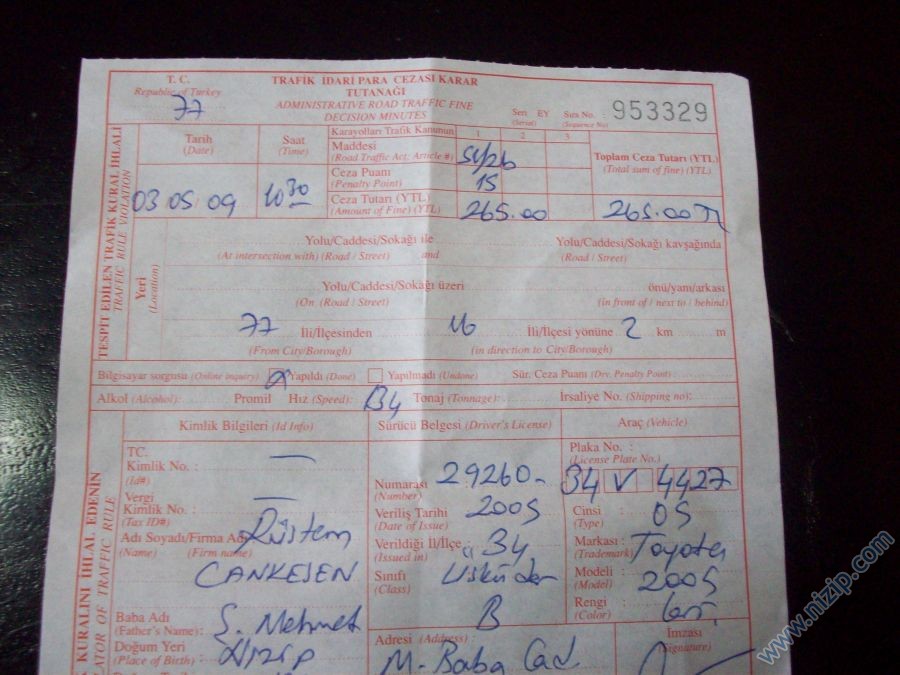 T. C.
Republic of Turkey
77
TRAFİK İDARİ PARA CEZASI KARAR
TUTANAĞI
ADMINISTRATIVE ROAD TRAFFIC FINE
DECISION MINUTES
Seri EY
(Serial)
Sıra No. :
(Sequence No)
953329
TESPİT EDİLEN TRAFİK KURAL İHLALİ
TRAFFIC RULE VIOLATION
Tarih
(Date)
Saat
(Time)
Karayolları Trafik Kanunun
1 2 3
Maddesi
(Road Traffic Act; Article #)
51/2b
Ceza Puanı
(Penalty Point)
15
Ceza Tutarı (YTL)
(Amount of Fine) (YTL)
265.00
Toplam Ceza Tutarı (YTL)
(Total sum of fine) (YTL)
265.00 TL
03 05 09
10 30
Yeri
(Location)
Yolu/Caddesi/Sokağı ile
Yolu/Caddesi/Sokağı kavşağında
(At intersection with) (Road / Street) and
(Road / Street)
Yolu/Caddesi/Sokağı üzeri
önü/yanı/arkası
(On (Road / Street)
(in front of / next to / behind)
77 İli/İlçesinden 16 İli/İlçesi yönüne 2 km m
(From City/Borough)
(in direction to City/Borough)
Bilgisayar sorgusu (Online inquiry) Yapıldı (Done) Yapılmadı (Undone) Sür. Ceza Puanı (Drv. Penalty Point) :
Alkol (Alcohol): Promil Hız (Speed): 134 Tonaj (Tonnage): İrsaliye No. (Shipping no):
KURALINI İHLAL EDENİN
OF TRAFFIC RULE
Kimlik Bilgileri (Id Info)
Sürücü Belgesi (Driver's License)
Araç (Vehicle)
TC.
Kimlik No. :
(Id#)
Vergi
Kimlik No. :
(Tax ID#)
Adı Soyadı/Firma Adı
(Name) (Firm name)
Rüstem
CANKESEN
Baba Adı
(Father's Name):
S. Mehmet
Doğum Yeri
(Place of Birth)
Nizip
Numarası
(Number)
29260
Veriliş Tarihi
(Date of Issue)
2005
Verildiği İl/İlçe :
(Issued in)
34
Üsküdar
Sınıfı
(Class)
B
Adresi (Address) :
M. Baba Cad
Plaka No. :
(License Plate No.)
34 V 4427
Cinsi :
(Type)
05
Markası :
(Trademark)
Toyota
Modeli :
(Model)
2005
Rengi :
(Color)
İmzası
(Signature)
www.nizip.com